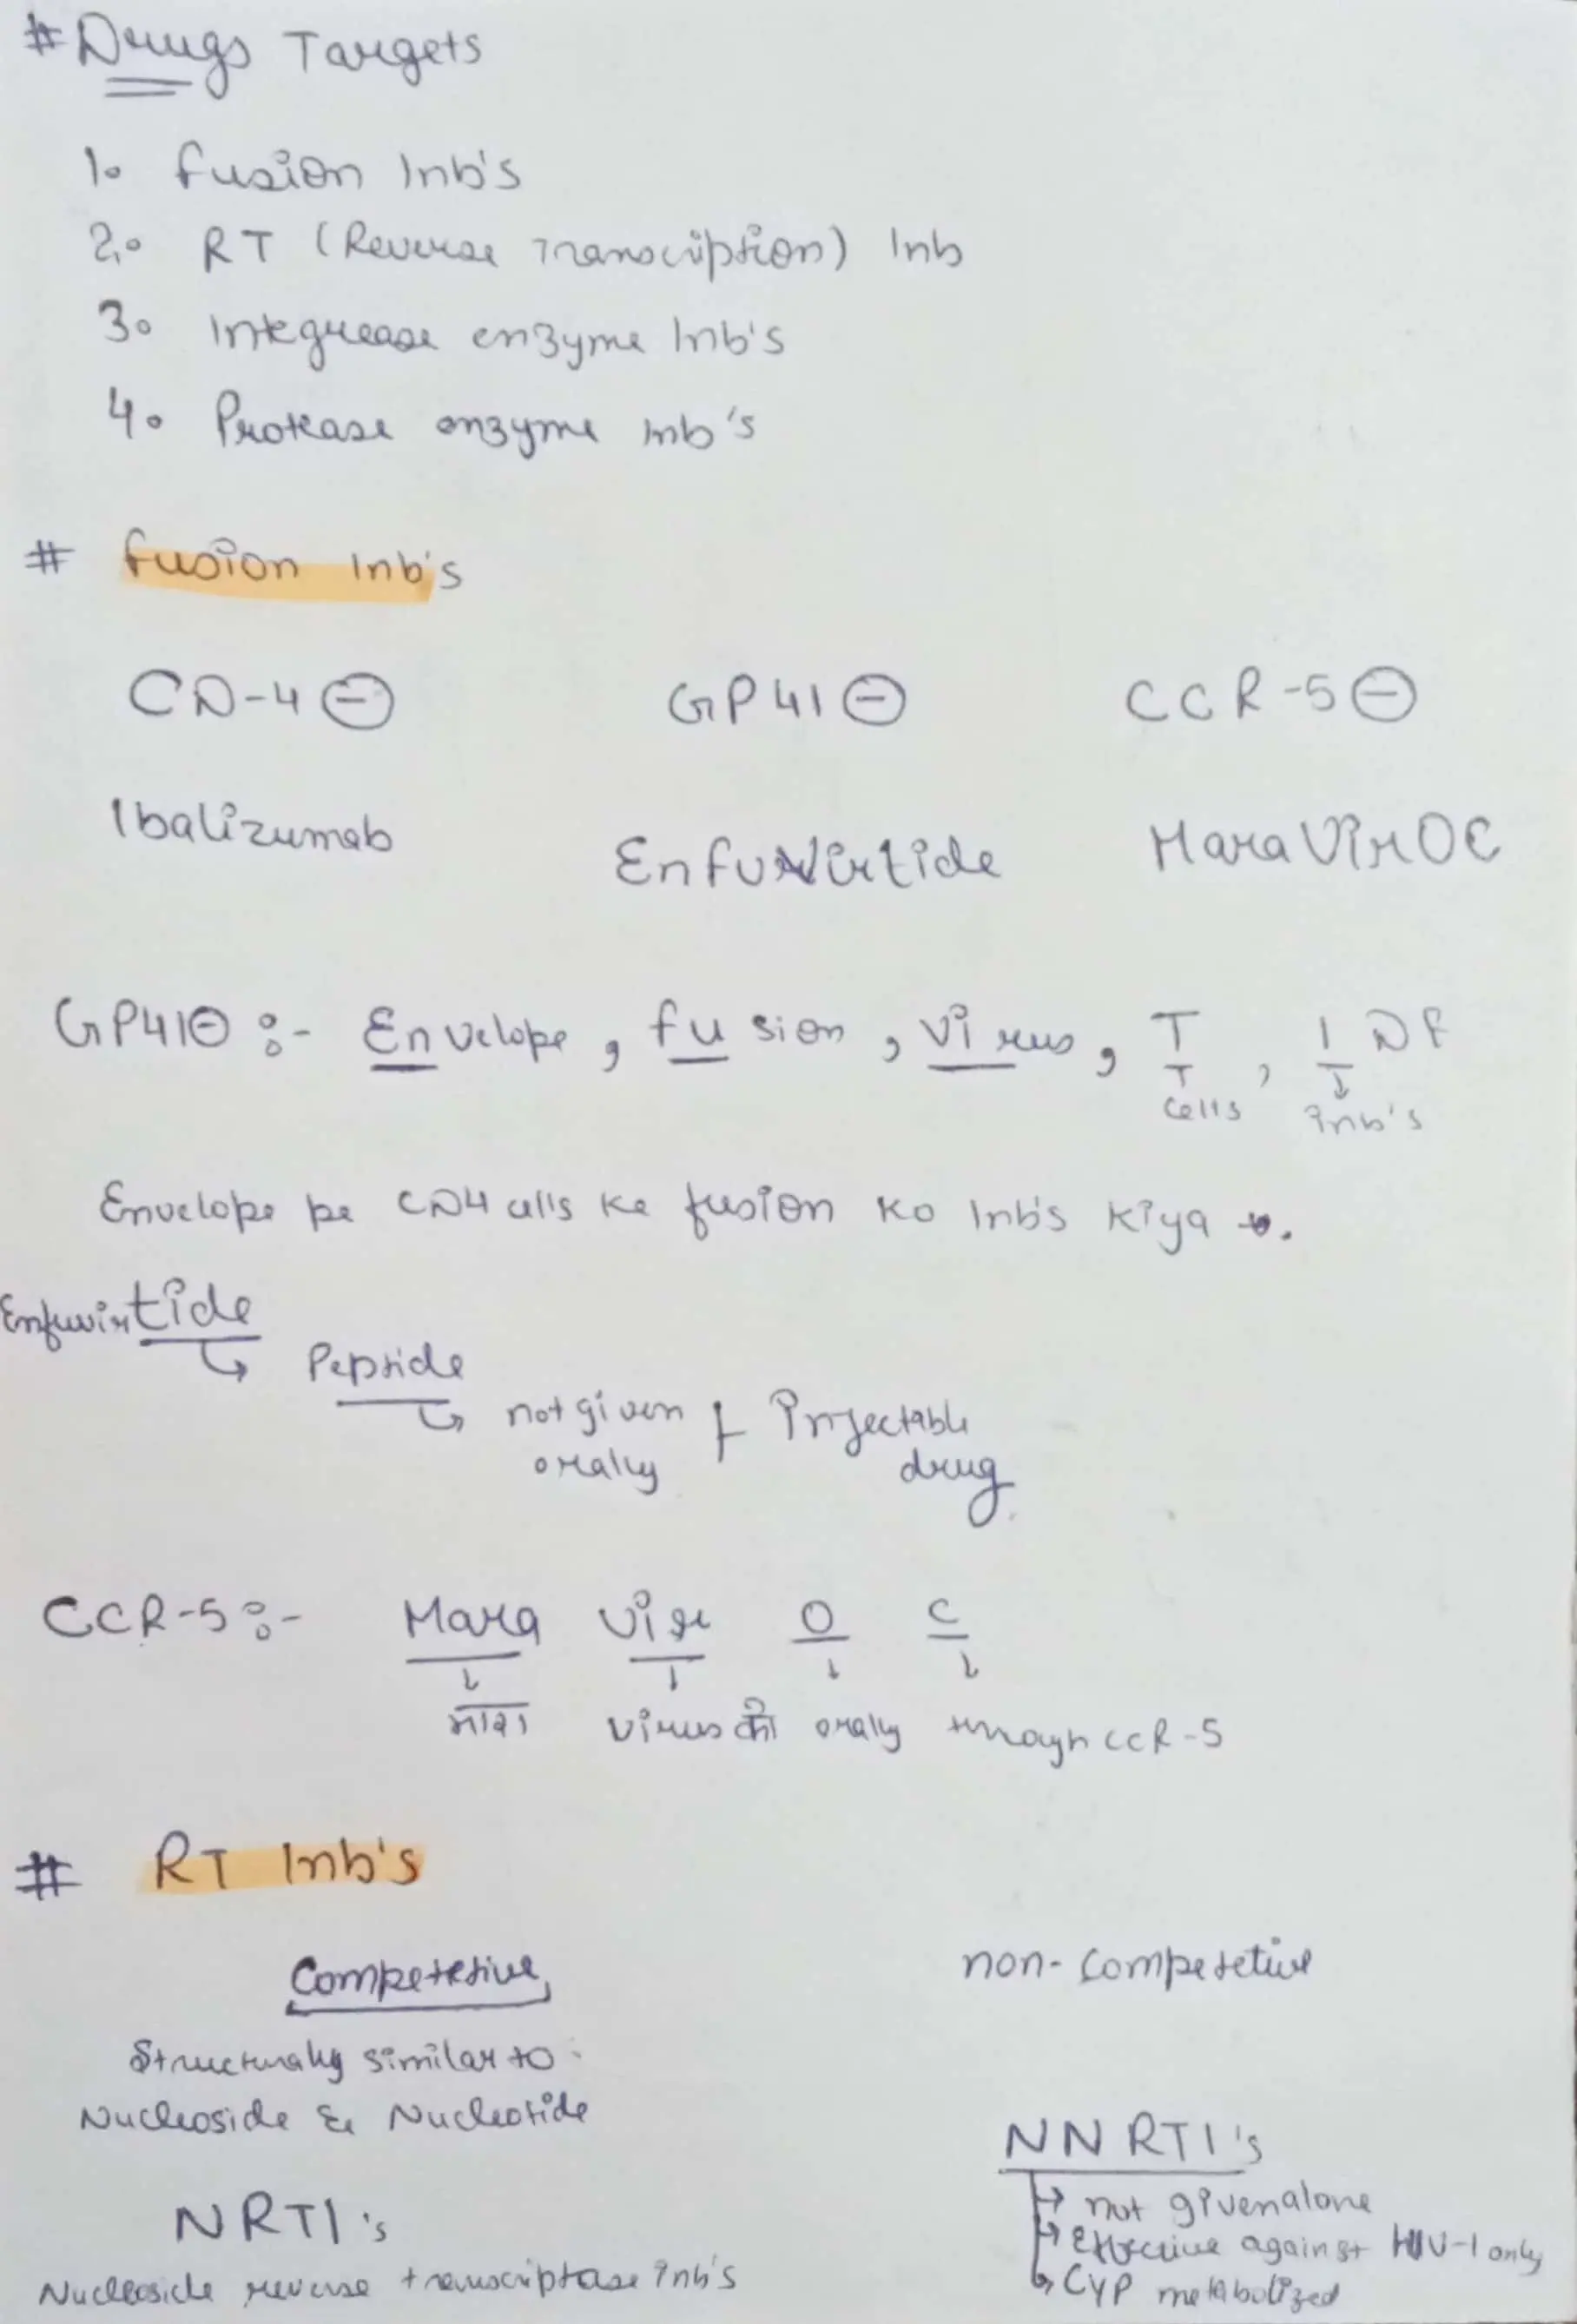 # Drugs Targets
1. Fusion Inb's
2. RT (Reverse Transcription) Inb
3. Integrease enzyme Inb's
4. Protease enzyme Inb's
# Fusion Inb's
CD-4 ⊖ GP41 ⊖ CCR-5 ⊖
Ibalizumab EnfuVirtide MaraVirOC
GP41⊖ :- Envelope, fusion, virus, T, I DE
T cells inb's
Envelope pe CD4 cells ke fusion ko Inb's kiya
Enfuvirtide
↳ Peptide
↳ not given orally & Injectable drug
CCR-5 :- Mara Vir O C
↓ ↓ ↓ ↓
मारा virus को orally through CCR-5
# RT Inb's
Competetive non-competetive
Structurally similar to
Nucleoside & Nucleotide
NNRTI's
NRTI's → not given alone
→ Effective against HIV-1 only
Nucleoside reverse transcriptase inb's ↳ CYP metabolized